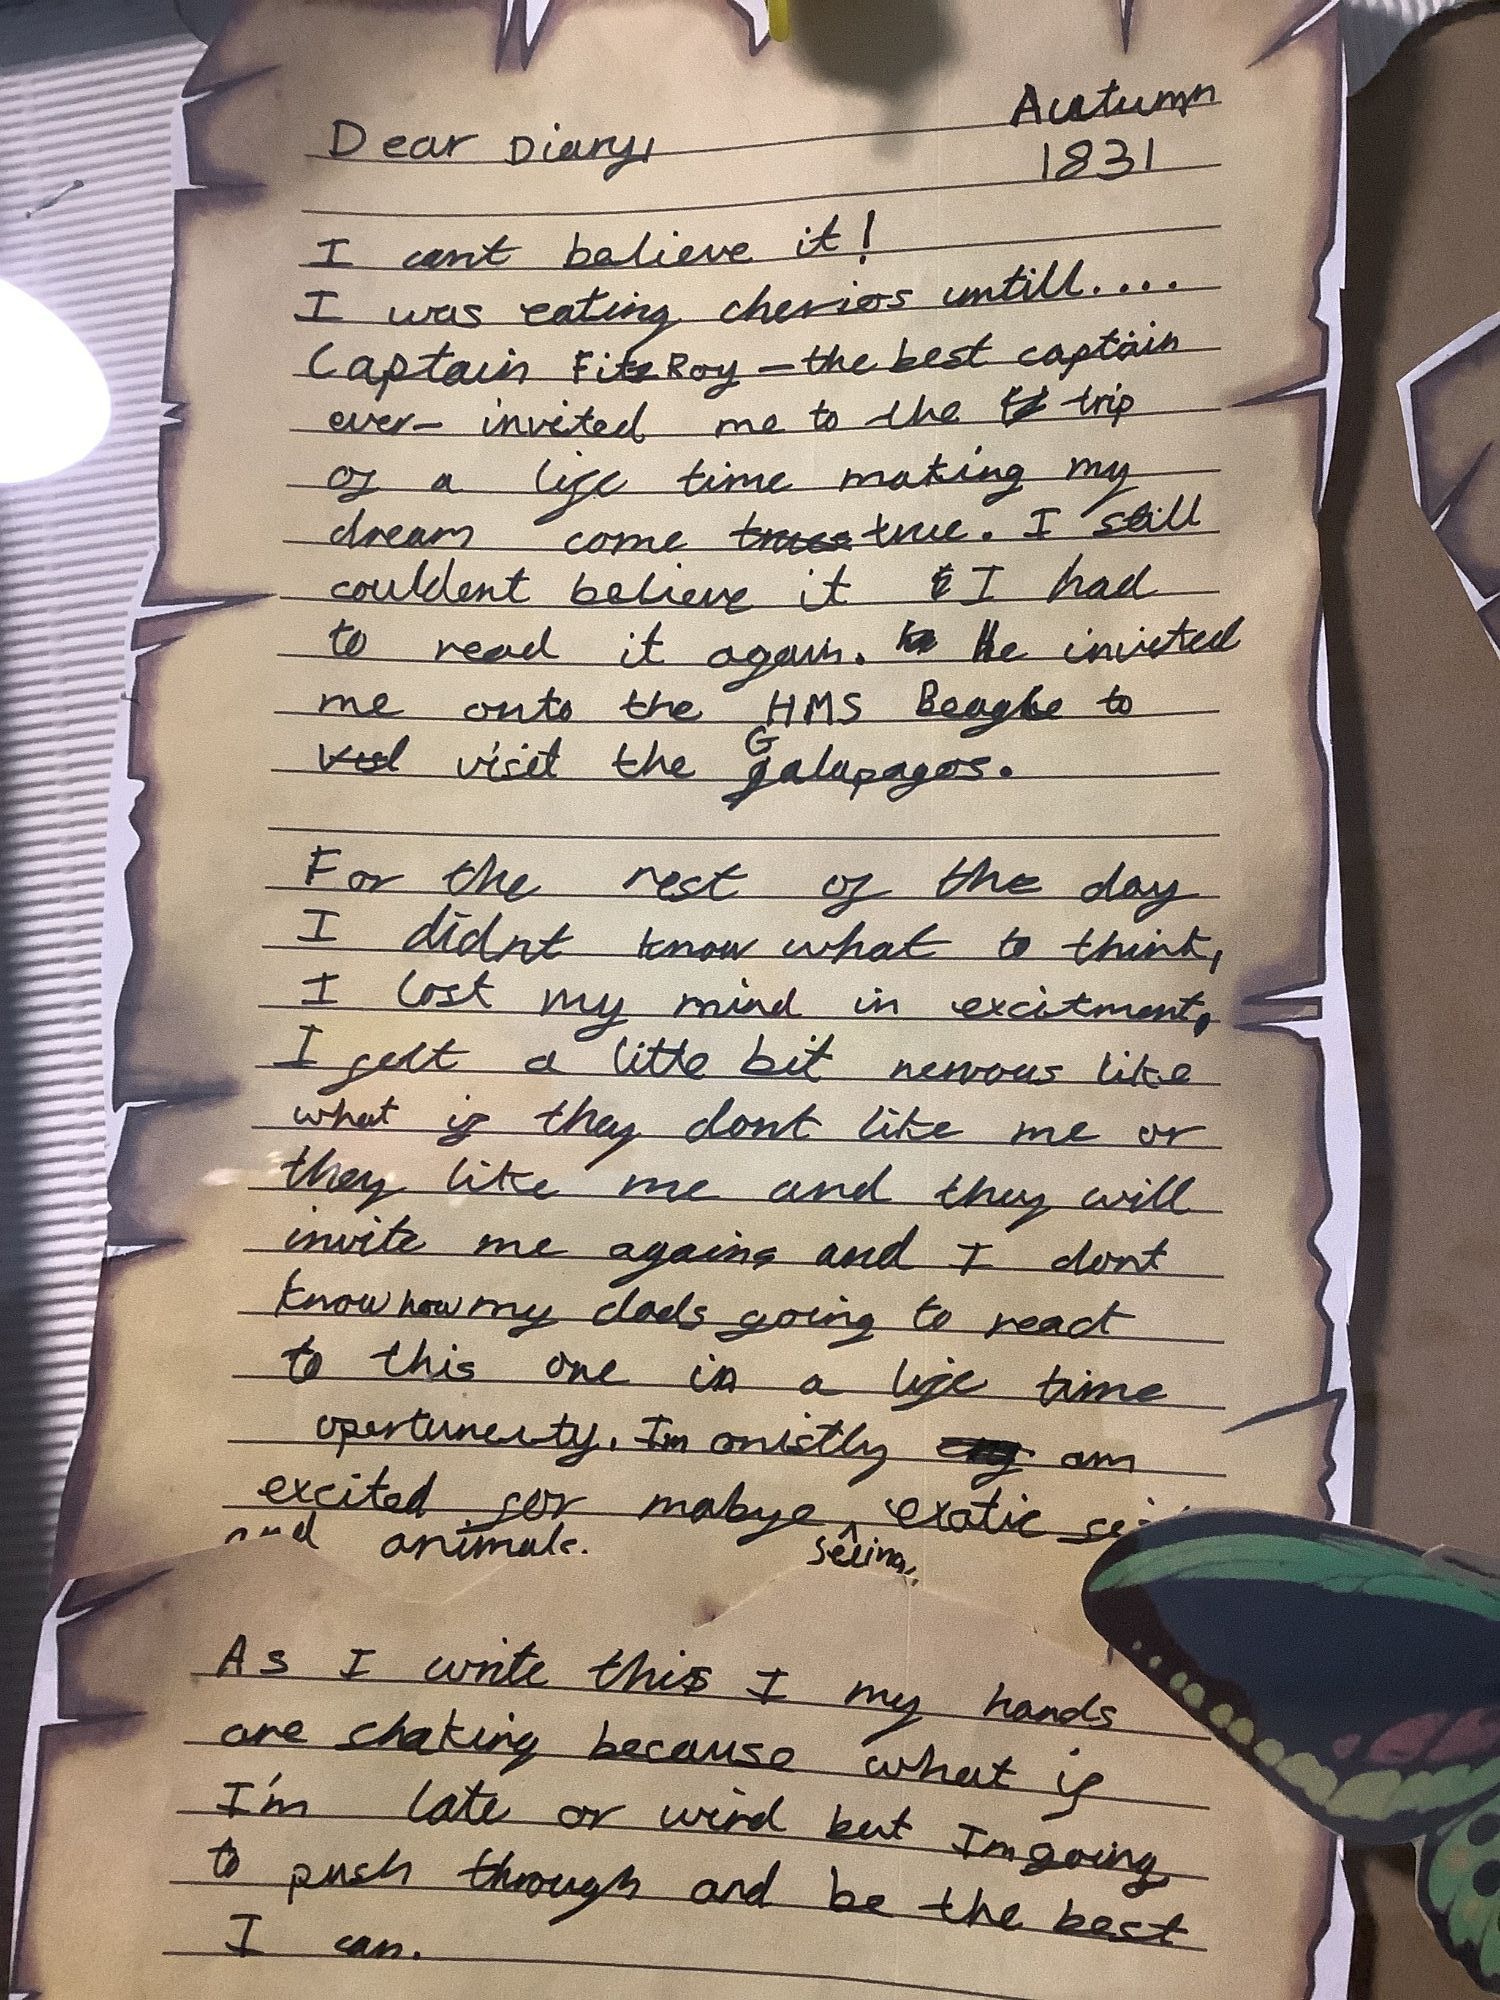 Autumn
Dear Diary, 1831
I cant believe it!
I was eating cherios untill....
Captain FitzRoy – the best captain
ever – invited me to the trip
of a life time making my
dream come true. I still
couldent believe it I had
to read it again. He invited
me onto the HMS Beagle to
visit the Galapagos.
For the rest of the day
I didnt know what to think,
I lost my mind in excitment,
I felt a little bit nervous like
what if they dont like me or
they like me and they will
invite me again and I dont
know how my dads going to react
to this one in a life time
opertuneity. Im onistly am
excited for mabye exotic
and animals.
As I write this I my hands
are shaking because what if
I'm late or wird but Im going
to push through and be the best
I can.